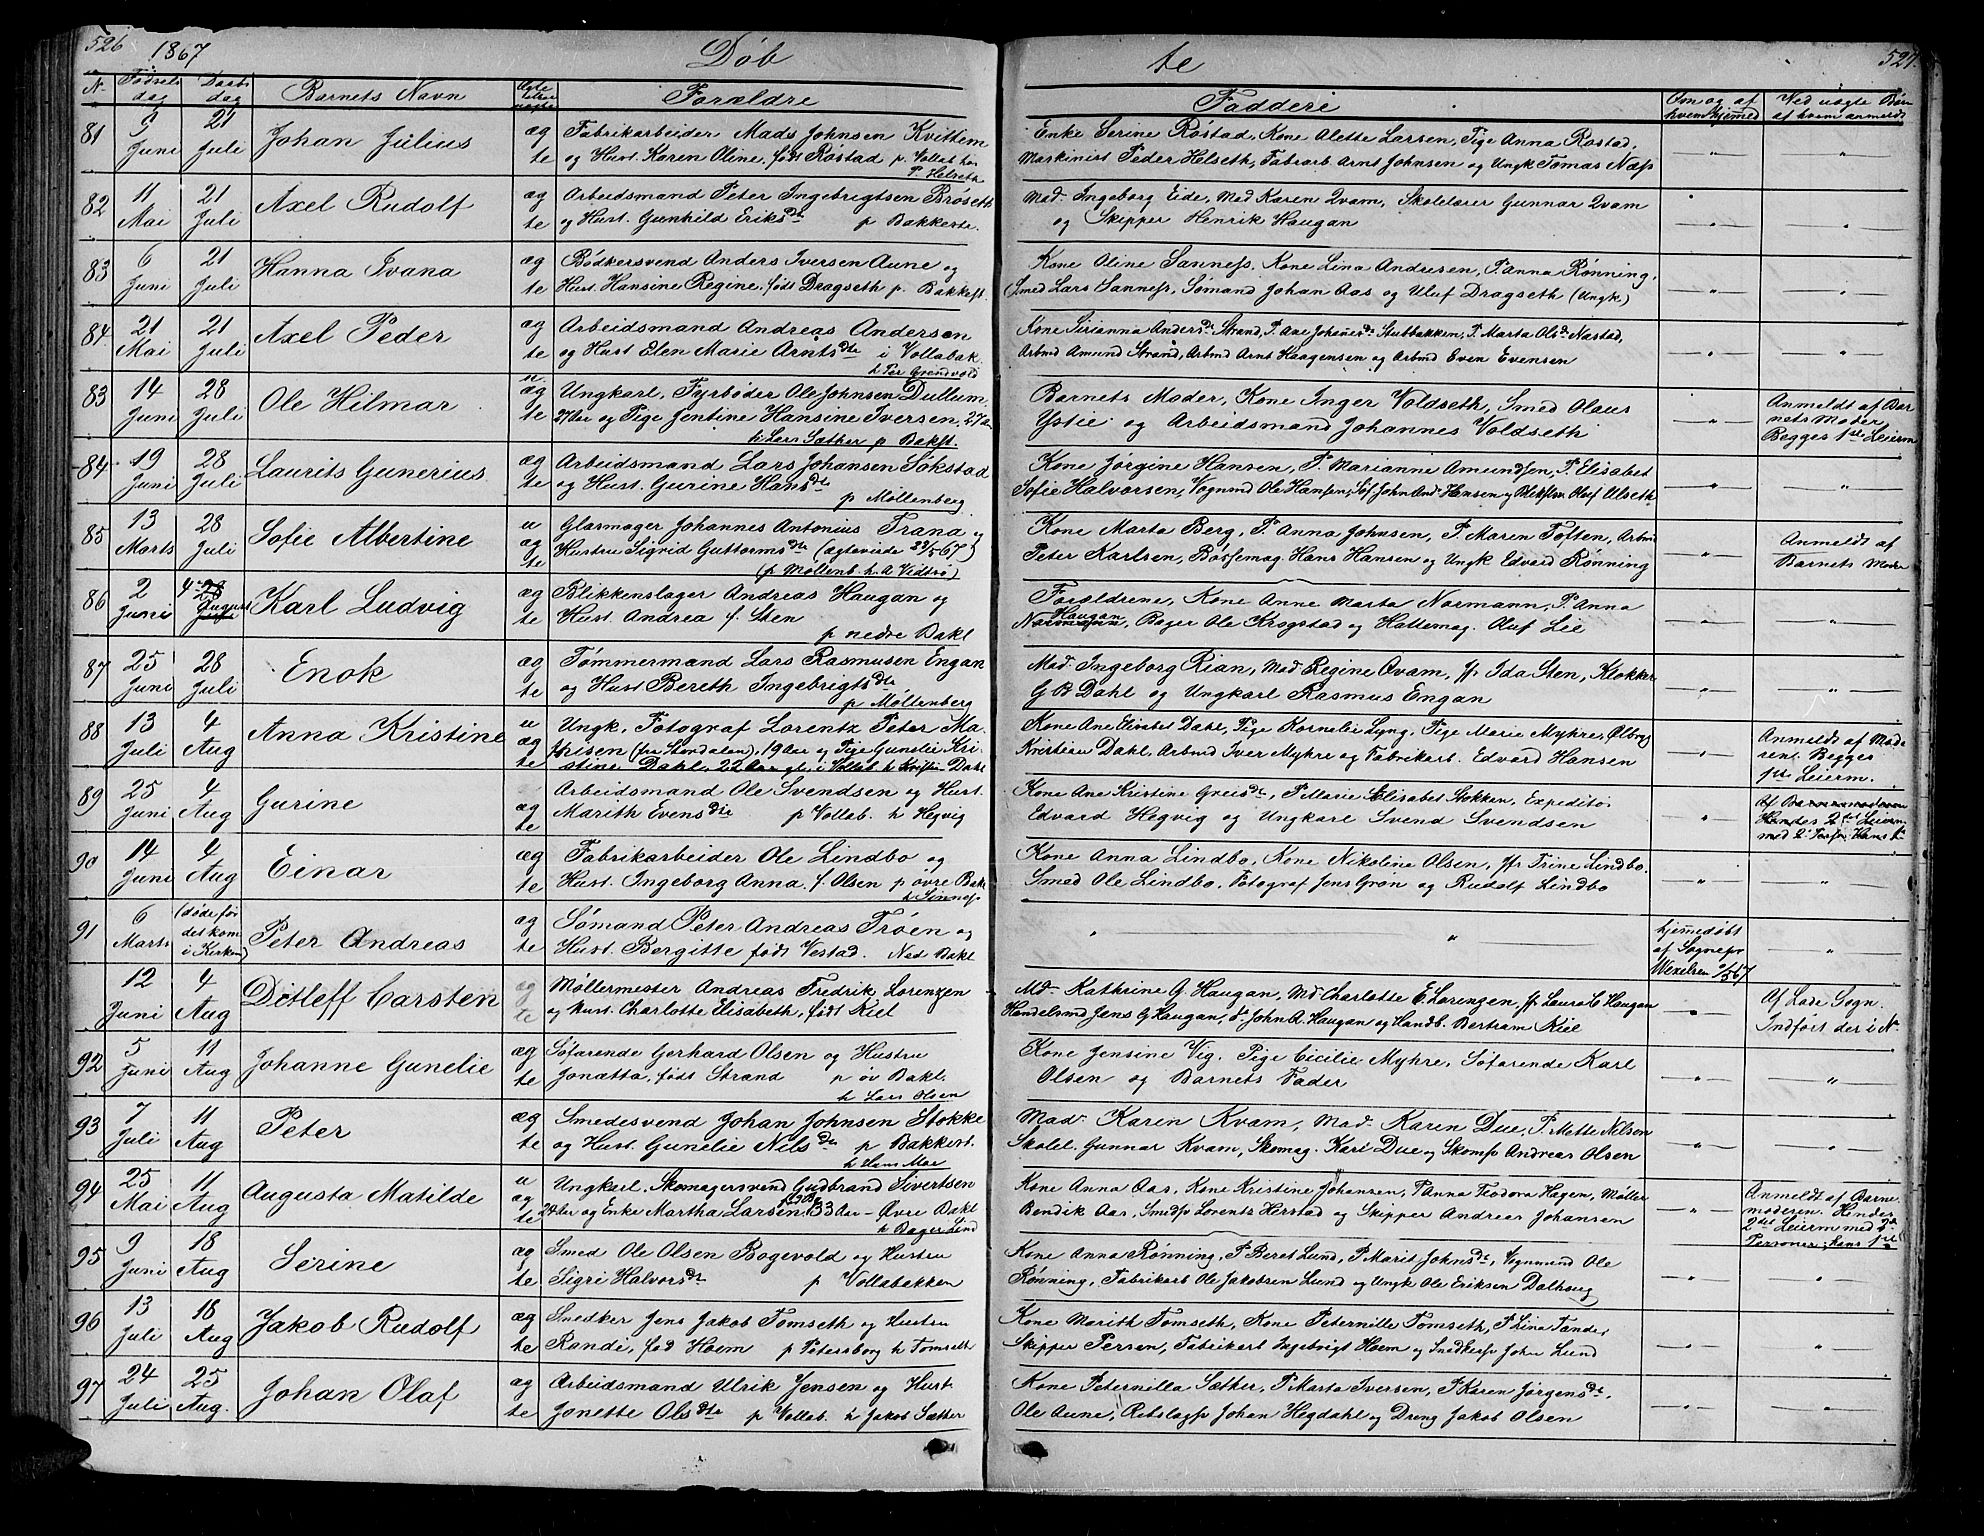 526 1867 Døb te 527.
N. Fødsels dag Daabs dag Barnets Navn Ægte eller uægte Forældre Fadderi Om og af hvem hjemed Ved uægte Børn af hvem anmeldt
81 9 Juni 21 Juli Johan Julius ægte Fabrikarbeider Mads Johnsen Kvittem
og Hust. Karen Oline, født Røstad p. Vollab. hos
P. Helseth
Enke Serine Røstad, Kone Alette Larsen, Pige Anna Røstad,
Maskinist Peder Helseth, Fabrarb Arnt Johnsen og Ungk Tomas Næss
82 11 Mai 21 Juli Axel Rudolf ægte Arbeidsmand Peter Ingebrigtsen Brøseth
og Hust. Gunhild Eriksdt p Bakkeste.
Mad. Ingeborg Eide, Mad Karen Qvam, Skolelærer Gunnar Qvam
og Skipper Henrik Haugan
83 6 Juni 21 Juli Hanna Ivana ægte Bødkersvend Anders Iversen Aune og
Hust. Hansine Regine, født Dragseth p. Bakkest.
Kone Oline Sanness, Kone Lina Andresen, P. Anna Rønning,
(Smed Lars Sanness, Sømand Johan Aas og Uluf Dragseth (Ungk)
84 21 Mai 21 Juli Axel Peder ægte Arbeidsmand Andreas Andersen
og Hust Elen Marie Arntsdtr i Vollabak.
h Per Grendvold
Kone Sirianna Andersdt Strand, P. Ane Johanesdt Stubbakken, P. Marta Olsdt Nastad,
Arbmd Amund Strand, Arbmd Arnt Haagensen og Arbmd Even Evensen
83 14 Juni 28 Juli Ole Hilmar u.ægte Ungkarl, Fyrbøder Ole Johnsen Dullum,
27 Aar og Pige Jentine Hansine Iversen, 27 Aar
h Lars Sæther p Bakst.
Barnets Moder, Kone Inger Voldseth, Smed Olaus
Ystie og Arbeidsmand Johannes Voldseth
Anmeldt af Barnets Moder
Begges 1ste Leierm
84 19 Juni 28 Juli Laurits Gunerius ægte Arbeidsmand Lars Johansen Sökstad
og Hust. Gurine Hansdt
p Möllenberg
Kone Jørgine Hansen, P. Marianne Amundsen, P. Elisabet
Sofie Halvorsen, Vognmd Ole Hansen, Søf John And. Hansen og Olaf Ulseth
85 13 Marts 28 Juli Sofie Albertine uægte Glasmager Johannes Antonius Trana og
Hustru Sigrid Guttormsdt (ægteviede
(p Möllenb. h. A Vidtrø)
Kone Marta Berg, P. Anna Johnsen, P. Maren Toften, Arbmd
Peter Karlsen, Bøssemag. Hans Hansen og Ungk Edvard Rønning
Anmeldt af
Barnets Moder
86 2 Juni 4 August Karl Ludvig ægte Blikkenslager Andreas Haugan og
Hust. Andrea f. Sten
p nedre Bakl
Forældrene, Kone Anne Marta Normann, P. Anna
Haugan, Bager Ole Krogstad og Hattemag. Oluf Lie
87 25 Juni 28 Juli Enok ægte Tømmermand Lars Rasmusen Engan
og Hust Bereth Ingebrigtsdtr
p Möllenberg
Mad. Ingeborg Rian, Mad. Regine Qvam, Jfr Ida Sten, Klokker
G B Dahl og Ungkarl Rasmus Engan
88 13 Juli 4 Aug Anna Kristine uægte Ungk. Fotograf Lorentz Peter Ma-
thisen (fra Surndalen), 19 Aar og Pige Gunelie Kri-
stine Dahl, 22 Aar gl. i Vollab. h Kristen Dahl
Kone Ane Elisabet Dahl, Pige Kornelie Lyng, Pige Marie Myhre, Ølbryg
Kristian Dahl, Arbmd Iver Myhre og Fabrikarb. Edvard Hansen
Anmeldt af Mode-
ren. Begges
1ste Leierm.
89 25 Juni 4 Aug Gurine ægte Arbeidsmand Ole Svendsen og Hust.
Marith Evensdtr p Vollab. h Hegvig
Kone Ane Kristine Greisdt, P Marie Elisabet Stokken, Expeditör
Edvard Hegvig og Ungkarl Svend Svendsen
Af Barnemoderen
Hendes 2det Leierm
med 2
90 14 Juni 4 Aug Einar ægte Fabrikarbeider Ole Lindbo og
Hust. Ingeborg Anna, f. Olsen p øvre Bakl
h Sinness
Kone Anna Lindbo, Kone Nikoline Olsen, Jfr Trine Lindbo
Smed Ole Lindbo, Fotograf Jens Grøn og Rudolf Lindbo
91 6 Marts (døde før det kom i Kirken) Peter Andreas ægte Sømand Peter Andreas Trøen og
Hust. Bergitte født Vestad. Ned Bakl
hjemedøbt
af Sognepr
Wexelsen 9/5 67
12 Juni 4 Aug Ditleff Carsten ægte Møllermester Andreas Fredrik Lorenzen
og Hust. Charlotte Elisabeth, født Kiel
Md. Kathrine G. Haugan, Md Charlotte E. Lorenzen, Jfr Laura C Haugan
Handelsmd Jens G Haugan, d. John A. Haugan og Handb. Bertram Kiel
Af Lade Sogn.
Indført der i N
92 5 Juni 11 Aug Johanne Gunelie ægte Søfarende Gerhard Olsen og Hustru
Jonætta, født Strand p øv Bakl.
h Lars Olsen
Kone Jensine Vig, Pige Cicilie Myhre, Søfarende Karl
Olsen og Barnets Fader
93 7 Juli 11 Aug Peter ægte Smedesvend Johan Johnsen Stokke
og Hust. Gunelie Nilsdtr p Bakkest.
h Hans Moe
Mad Karen Kvam, Mad. Karen Due, P. Mette Nilsen
Skolel. Gunnar Kvam, Skomag. Karl Due og Skomss Andreas Olsen
94 25 Mai 11 Aug Augusta Matilde uægte Ungkarl, Skomagersvend Gudbrand Sivertsen
24 Aar og Enke Martha Larsen, 33 Aar - Øvre Bakl
h Bager Lind
Kone Anna Aas, Kone Kristine Johansen, P Anna Teodora Hagen, Møller
Bendik Aas, Smedss Lorentz Herstad og Skipper Andreas Johansen
Anmeldt af Barne-
moderen. Hendes
2det Leierm med 2de
Personer, hans 1ste
95 9 Juni 18 Aug Serine ægte Smed Ole Olsen Bogevold og Hustru
Sigri Halvorsdtr p Vollabakken
Kone Anna Rønning, P Beret Lund, P Marit Johnsdt, Vognmand Ole
Rønning, Fabrikarb Ole Jakobsen Lund og Ungk Ole Eriksen Dalhaug
96 13 Juli 18 Aug Jakob Rudolf ægte Snedker Jens Jakob Tomseth og Hustru
Randi, fød Hoem p Petersborg h Tomseth
Kone Merith Tomseth, Kone Peternille Tomseth, P Lina Tander
Skipper Persen, Fabrikarb Ingebrigt Hoem og Snedkerss John Lund
97 24 Juli 25 Aug. Johan Olaf ægte Arbeidsmand Ulrik Jensen og Hust.
Jonette Olsdtr p Vollab. h Jakob Sæther
Kone Peternilla Sæther, P Marta Iversen, P Karen Jørgensdt,
Ole Aune, Rebslagss Johan Hegdahl og Dreng Jakob Olsen